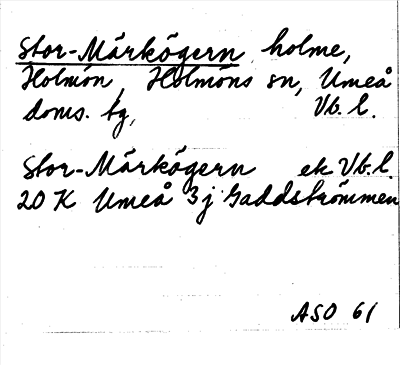 Stor-Märkögern, holme,
Holmön, Holmöns sn, Umeå
doms. tg, Vb. l.
Stor-Märkögern ek Vb. l.
20 K Umeå 3 j Gaddströmmen
ASO 61